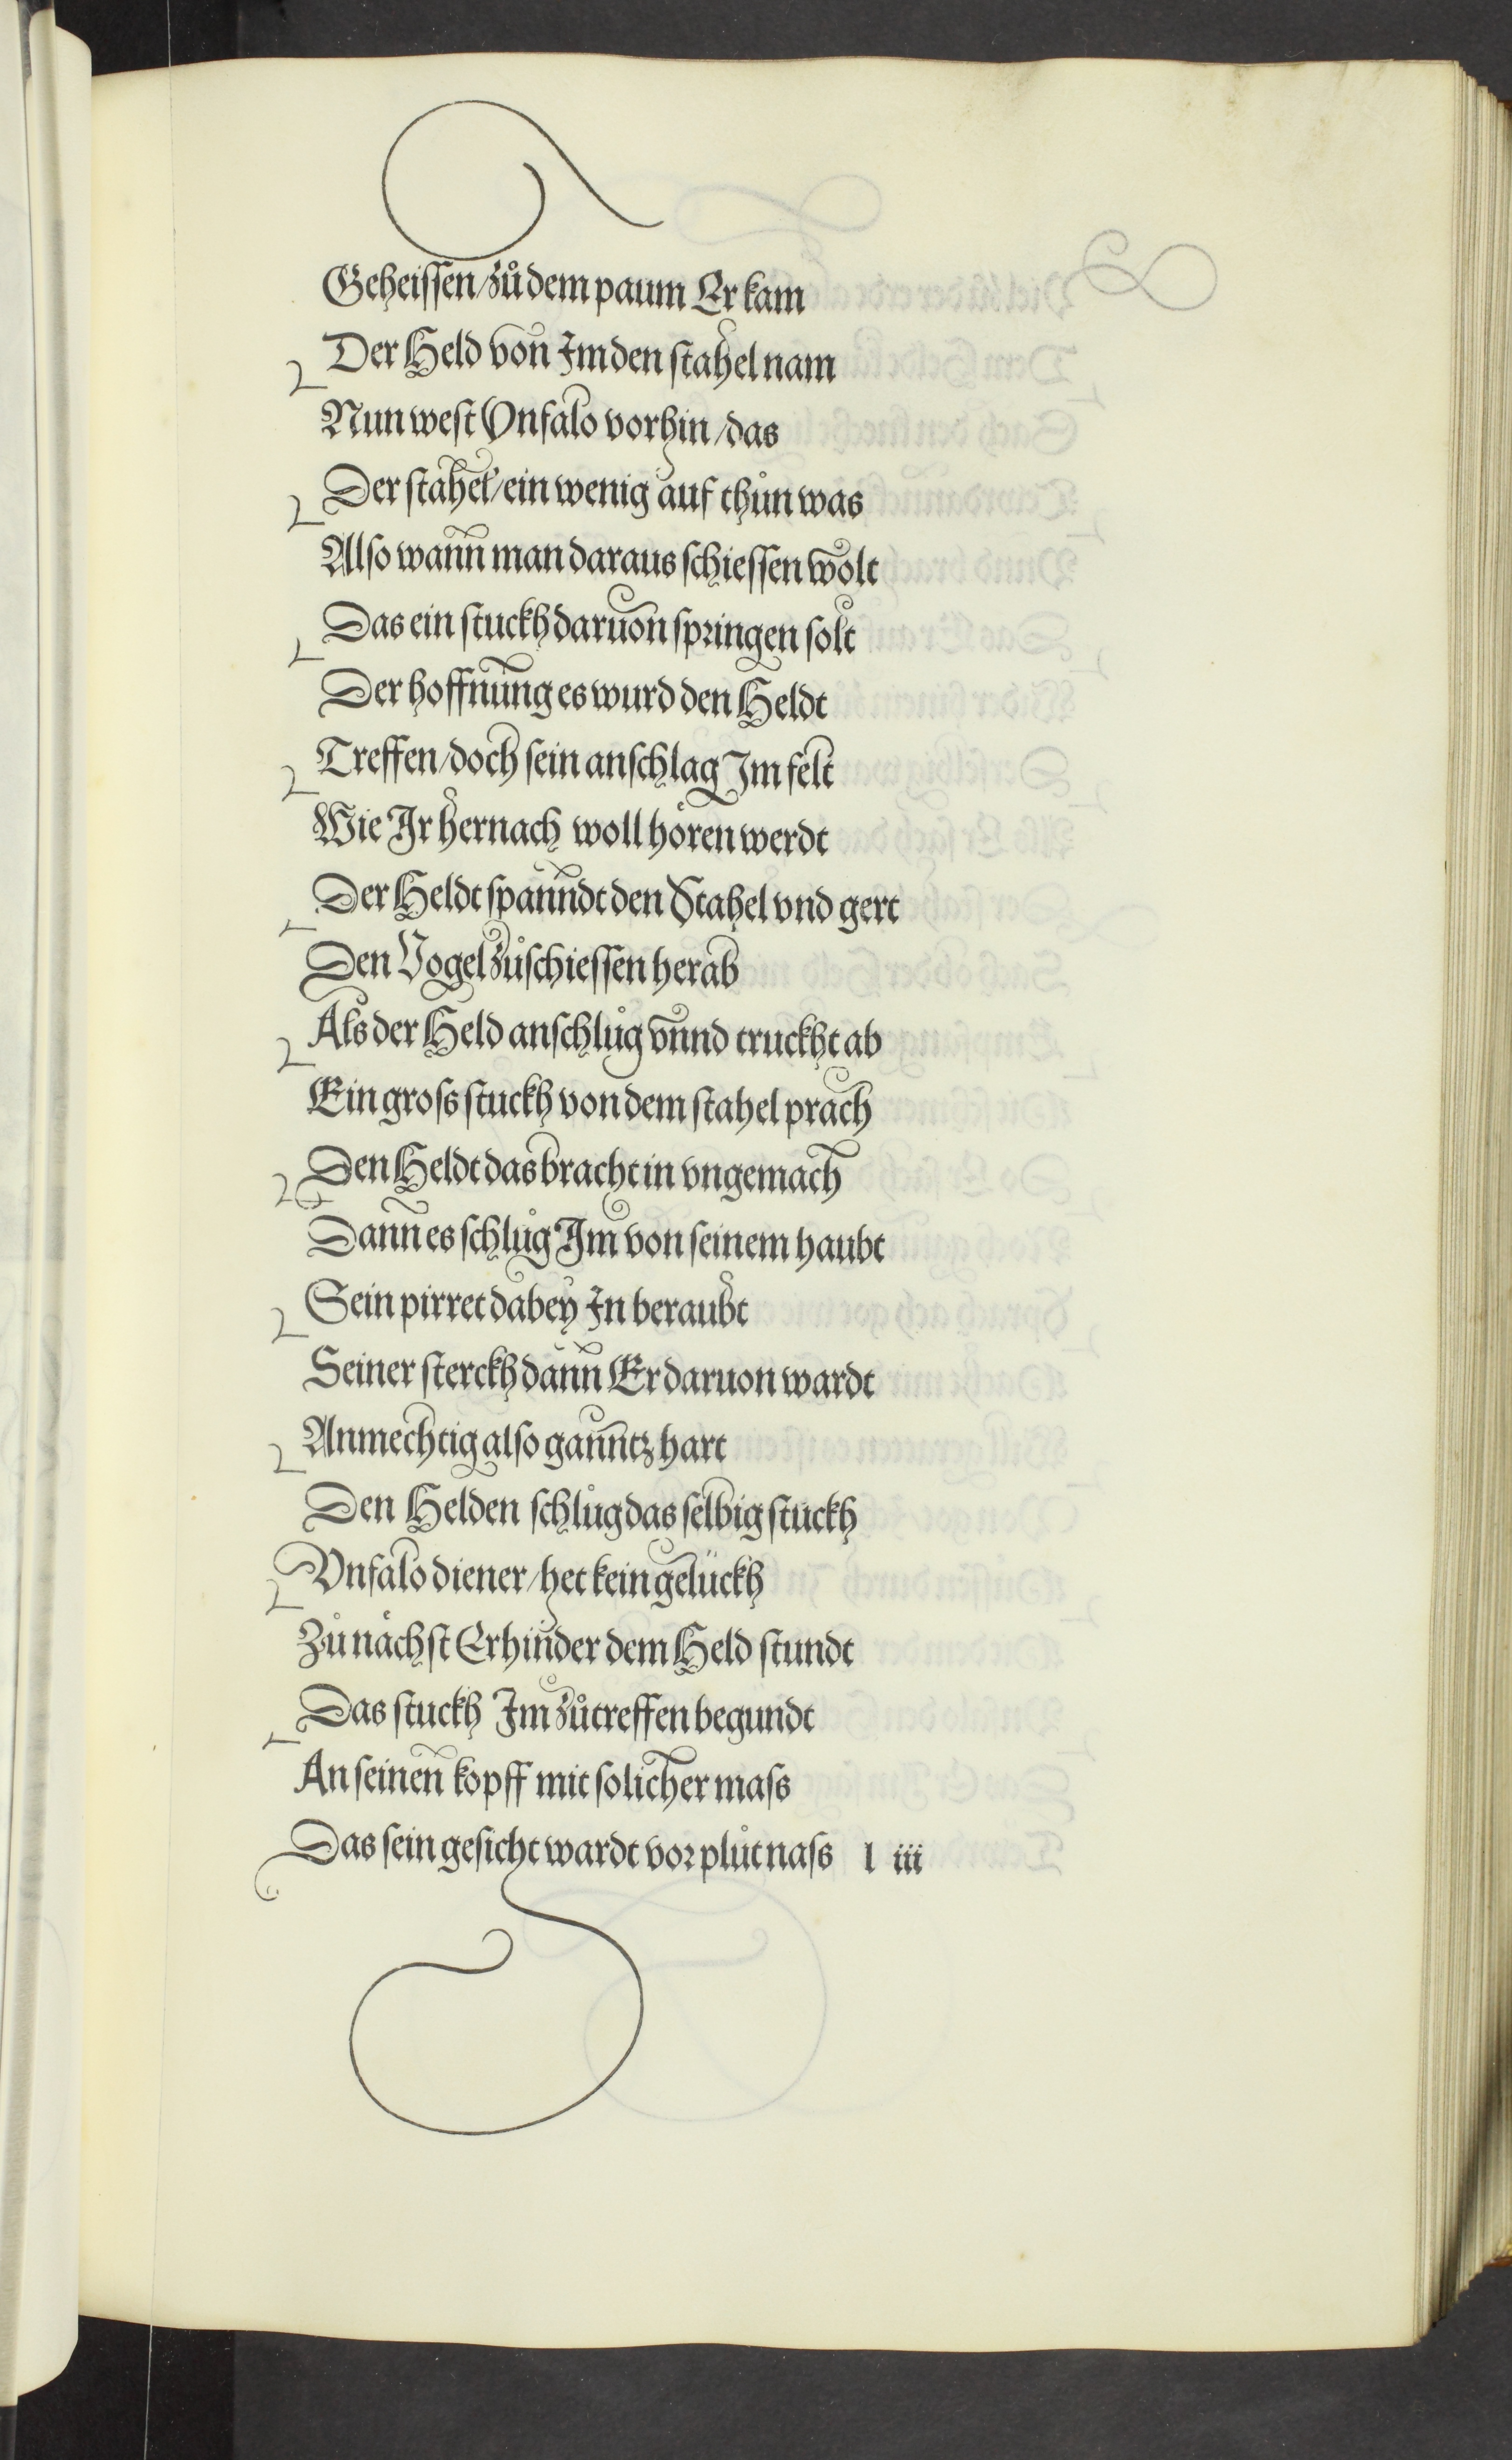 Geheissen/zůdem paum Er kam
Der Held von Im den stahel nam
Nun west Vnfalo vorhin/das
Der stahel/ein wenig auf thůn was
Also wann man daraus schiessen wolt
Das ein stuckh daruon springen solt
Der hoffnung es wurd den Heldt
Treffen/doch sein anschlag Im felt
Wie Ir hernach woll hören werdt
Der Heldt spanndt den Stahel vnd gert
Den Vogel zůschiessen herab
Als der Held anschlůg vnnd truckht ab
Ein gross stuckh von dem stahel prach
Den Heldt das bracht in vngemach
Dann es schlůg Im von seinem haubt
Sein pirret dabey In beraubt
Seiner sterckh dann Er daruon wardt
Anmechtig also ganntz hart
Den Helden schlůg das selbig stuckh
Vnfalo diener/het kein gelückh
Zů nächst Er hinder dem Held stundt
Das stuckh Im zůtreffen begundt
An seinen kopff mit solicher mass
Das sein gesicht wardt vor plůt nass l iii